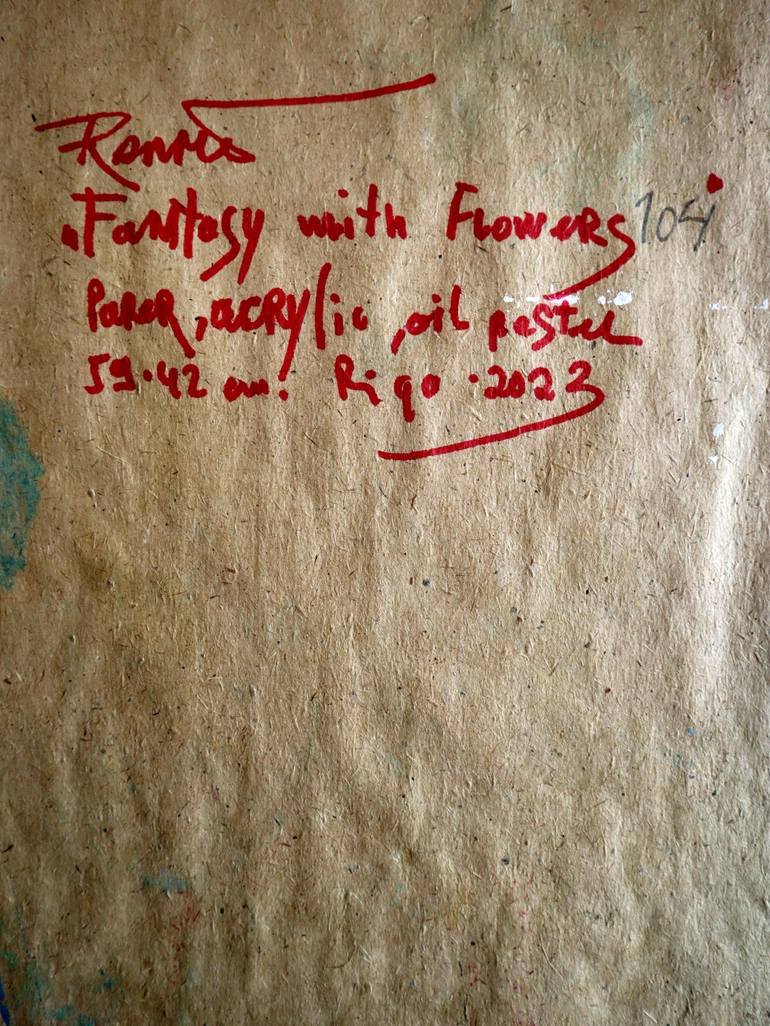 „Fantasy with Flowers 104
Paper, acrylic, oil pastel
59.42 cm. Riga.2023